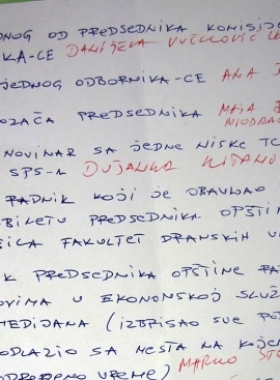 DNOG OD PREDSEDNIKA KOMISIJ
KA-CE DANIJELA VUČKOVIĆ
JEDNOG ODBORNIKA-CE ANA
OZAČA PREDSEDNIKA MAJA
MIODRAG
NOVINAR SA JEDNE NISKE TC
SPS-A DUJANKA
RADNIK KOJI JE OBAVLJAO
BILETU PREDSEDNIKA OPŠTIN
ŠICA FAKULTET DRAMSKIH U
K PREDSEDNIKA OPŠTINE RA
OVIMA U EKONOMSKOJ SLUŽ
MEDIJANA (IZBRISAO SVE PO
ODLAZIO SA MESTA NA KOJE
ODREĐENO VREME) MARKO STO